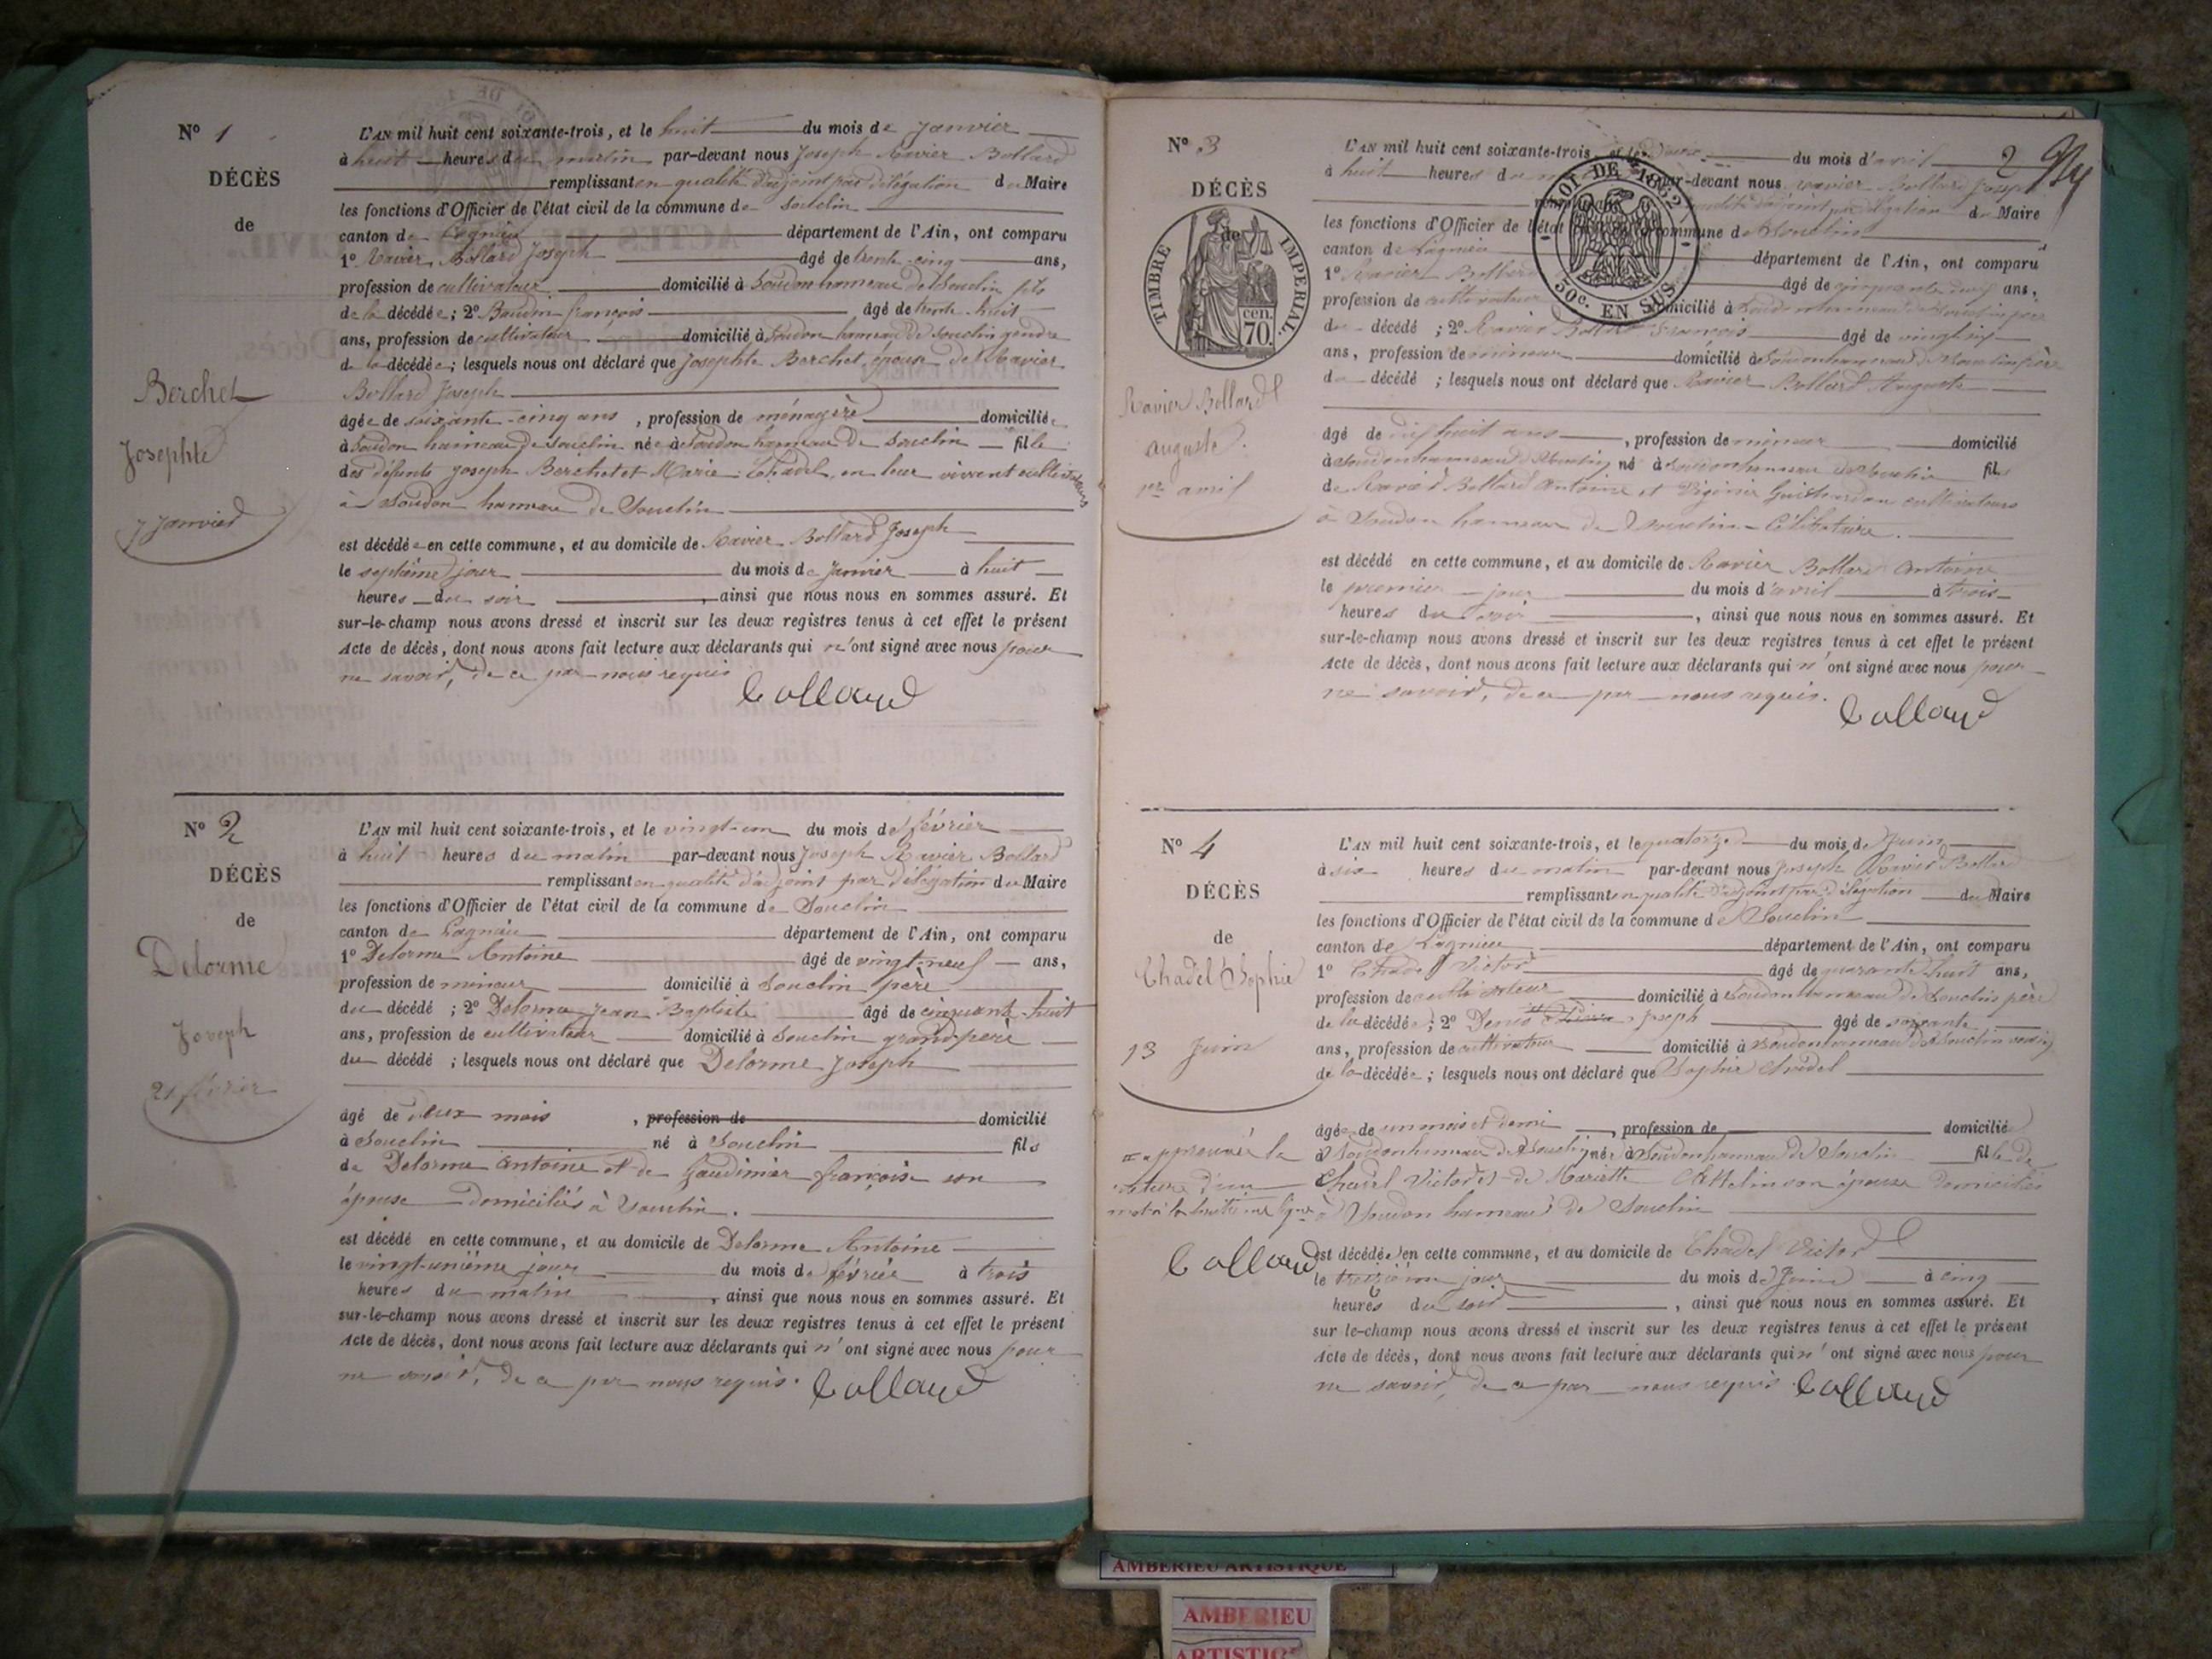 N° 1
DÉCÈS
de
Berchet
Josephte
7 Janvier
L'AN mil huit cent soixante-trois, et le huit du mois de Janvier
à huit heures du matin par-devant nous Joseph Ravier Bollard
remplissant en qualité d'adjoint par délégation du Maire
les fonctions d'Officier de l'état civil de la commune de Souclin
canton de Lagnieu département de l'Ain, ont comparu
1° Ravier Bollard Joseph âgé de trente-cinq ans,
profession de cultivateur domicilié à Soudon hameau de Souclin fils
de la décédée; 2° Baudin françois âgé de trente-huit
ans, profession de cultivateur domicilié à Soudon hameau de Souclin gendre
de la décédée; lesquels nous ont déclaré que Josephte Berchet, épouse de Ravier
Bollard Joseph
âgée de soixante-cinq ans, profession de ménagère domiciliée
à Soudon hameau de Souclin née à Soudon hameau de Souclin fille
des défunts Joseph Berchet et Marie Chadel, en leur vivant cultivateurs
à Soudon hameau de Souclin
est décédée en cette commune, et au domicile de Ravier Bollard Joseph
le septième jour du mois de Janvier à huit
heures du soir, ainsi que nous nous en sommes assuré. Et
sur-le-champ nous avons dressé et inscrit sur les deux registres tenus à cet effet le présent
Acte de décès, dont nous avons fait lecture aux déclarants qui n'ont signé avec nous pour
ne savoir, de ce par nous requis
Collard
N° 2
DÉCÈS
de
Delorme
Joseph
21 février
L'AN mil huit cent soixante-trois, et le vingt-un du mois de février
à huit heures du matin par-devant nous Joseph Ravier Bollard
remplissant en qualité d'adjoint par délégation du Maire
les fonctions d'Officier de l'état civil de la commune de Souclin
canton de Lagnieu département de l'Ain, ont comparu
1° Delorme Antoine âgé de vingt-neuf ans,
profession de mineur domicilié à Souclin père
du décédé; 2° Delorme Jean Baptiste âgé de cinquante-huit
ans, profession de cultivateur domicilié à Souclin grand père
du décédé; lesquels nous ont déclaré que Delorme Joseph
âgé de deux mois, profession de domicilié
à Souclin né à Souclin fils
de Delorme Antoine et de Gaudimier françoise son
épouse domiciliés à Souclin.
est décédé en cette commune, et au domicile de Delorme Antoine
le vingt-unième jour du mois de février à trois
heures du matin, ainsi que nous nous en sommes assuré. Et
sur-le-champ nous avons dressé et inscrit sur les deux registres tenus à cet effet le présent
Acte de décès, dont nous avons fait lecture aux déclarants qui n'ont signé avec nous pour
ne savoir, de ce par nous requis.
Collard
2
N° 3
DÉCÈS
de
TIMBRE IMPERIAL
70 cen.
LOI DE 1862
50c. EN SUS
Ravier Bollard
auguste
1er avril
L'AN mil huit cent soixante-trois, et le deux du mois d'avril
à huit heures du par-devant nous Ravier Bollard Joseph
qualité d'adjoint par délégation du Maire
les fonctions d'Officier de l'état commune de Souclin
canton de Lagnieu département de l'Ain, ont comparu
1° Ravier Bollard âgé de cinquante ans,
profession de cultivateur domicilié à Soudon hameau de Souclin père
du décédé; 2° Ravier Bollard François âgé de vingt
ans, profession de mineur domicilié à Soudon hameau de Souclin frère
du décédé; lesquels nous ont déclaré que Ravier Bollard Auguste
âgé de dix huit ans, profession de mineur domicilié
à Soudon hameau de Souclin né à Soudon hameau de Souclin fils
de Ravier Bollard Antoine et Guichardon cultivateurs
à Soudon hameau de Souclin - Célibataire.
est décédé en cette commune, et au domicile de Ravier Bollard Antoine
le premier jour du mois d'avril à trois
heures du soir, ainsi que nous nous en sommes assuré. Et
sur-le-champ nous avons dressé et inscrit sur les deux registres tenus à cet effet le présent
Acte de décès, dont nous avons fait lecture aux déclarants qui n'ont signé avec nous pour
ne savoir, de ce par nous requis.
Collard
N° 4
DÉCÈS
de
Chadel Sophie
13 Juin
L'AN mil huit cent soixante-trois, et le quatorze du mois de Juin
à six heures du matin par-devant nous Joseph Ravier Bollard
remplissant en qualité d'adjoint par délégation du Maire
les fonctions d'Officier de l'état civil de la commune de Souclin
canton de Lagnieu département de l'Ain, ont comparu
1° Chadel Victor âgé de quarante huit ans,
profession de cultivateur domicilié à Soudon hameau de Souclin père
de la décédée; 2° Denis Joseph âgé de soixante
ans, profession de cultivateur domicilié à Soudon hameau de Souclin voisin
de la décédée; lesquels nous ont déclaré que Sophie Chadel
âgée de un mois et demi, profession de domiciliée
à Soudon hameau de Souclin née à Soudon hameau de Souclin fille de
Chadel Victor et de Mariette son épouse domiciliés
à Soudon hameau de Souclin
= approuvée la
rature d'un
mot à la huitième ligne
Collard
est décédée en cette commune, et au domicile de Chadel Victor
le treizième jour du mois de Juin à cinq
heures du soir, ainsi que nous nous en sommes assuré. Et
sur le-champ nous avons dressé et inscrit sur les deux registres tenus à cet effet le présent
Acte de décès, dont nous avons fait lecture aux déclarants qui n'ont signé avec nous pour
ne savoir, de ce par nous requis
Collard
AMBERIEU ARTISTIQUE
AMBERIEU
ARTISTIQUE